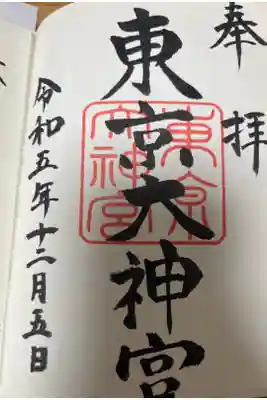 奉拝
東京大神宮
東京
大神宮
令和五年十二月五日